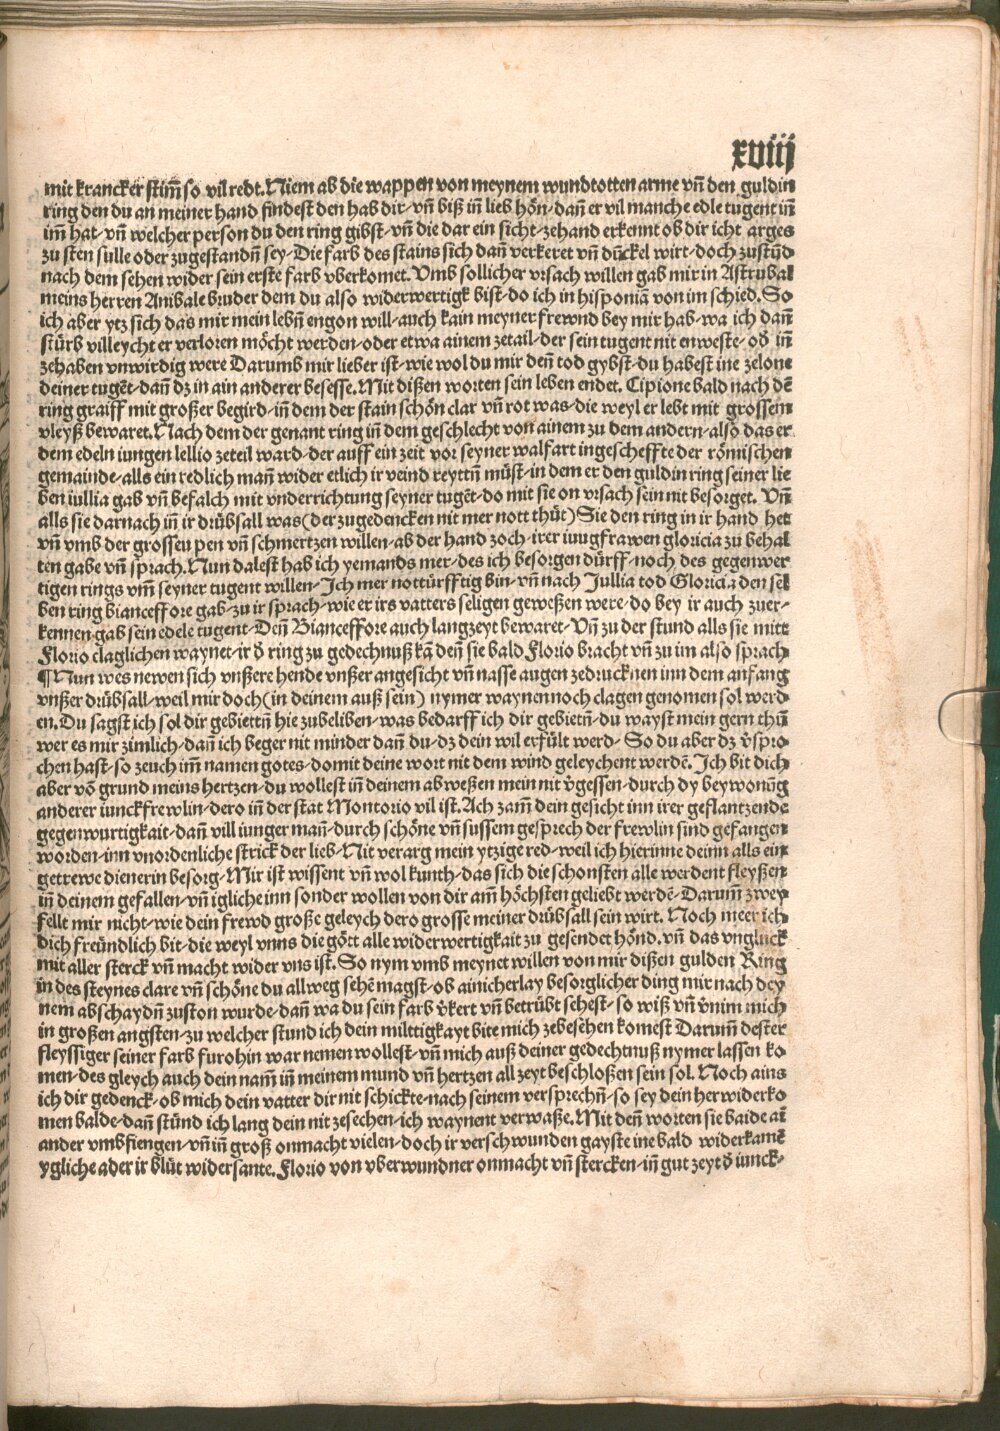 xviij
mit krancker stim̃ so vil redt. Niem ab die wappen von meynem wundtotten arme vn̄ den guldin
ring den du an meiner hand findest den hab dir⸗vn̄ biß in lieb hön⸗dan̄ er vil manche edle tugent in̄
im̄ hat⸗vn̄ welcher person du den ring gibst⸗vn̄ die dar ein sicht⸗zehand erkennt ob dir icht arges
zu sten sulle oder zugestandn̄ sey⸗Die farb des stains sich dan̄ verkeret vn̄ dückel wirt⸗doch zustūd
nach dem sehen wider sein erste farb vberkomet. Vmb sollicher vrsach willen gab mir in Astrubal
meins herren Anibale bruder dem du also widerwertigk bist⸗do ich in hisponiā von im schied. So
ich aber ytz sich das mir mein lebn̄ engon will⸗auch kain meyner frewnd bey mir hab⸗wa ich dan̄
stürb villeycht er verloren möcht werden⸗oder etwa ainem zetail⸗der sein tugent nit enweste⸗od̓ in̄
zehaben vnwirdig were Darumb mir lieber ist⸗wie wol du mir den̄ tod gybst⸗du habest ine zelone
deiner tugēt⸗dan̄ dz in ain anderer besesse. Mit dißen worten sein leben endet. Cipione bald nach dē
ring graiff mit großer begird⸗in̄ dem der stain schön clar vn̄ rot was⸗die weyl er lebt mit grossem
vleyß bewaret. Nach dem der genant ring in̄ dem geschlecht von ainem zu dem andern⸗also das er
dem edeln iungen lellio zeteil ward⸗der auff ein zeit vor seyner walfart ingescheffte der römischen
gemainde⸗alls ein redlich man̄ wider etlich ir veind reyttn̄ müst⸗in dem er den guldin ring seiner lie
ben iullia gab vn̄ befalch mit vnderrichtung seyner tugēt⸗do mit sie on vrsach sein nit besorget. Vn̄
alls sie darnach in̄ ir drübsall was (der zugedencken nit mer nott thüt) Sie den ring in ir hand het
vn̄ vmb der grosseu pen vn̄ schmertzen willen⸗ab der hand zoch⸗irer iuugfrawen gloricia zu behal
ten gabe vn̄ sprach. Nun dalest hab ich yemands mer⸗des ich besorgen dürff⸗noch des gegenwer
tigen rings vm̄ seyner tugent willen⸗Ich mer nottürfftig bin⸗vn̄ nach Jullia tod Gloricia den sel
ben ring bianceffore gab⸗zu ir sprach⸗wie er irs vatters seligen geweßen were⸗do bey ir auch zuer⸗
kennen gab sein edele tugent⸗Den̄ Bianceffore auch langzeyt bewaret⸗Vn̄ zu der stund alls sie mitt
Florio claglichen waynet⸗ir d̓ ring zu gedechnuß kā den̄ sie bald Florio bracht vn̄ zu im also sprach
¶Nun wes newen sich vnßere hende vnßer angesicht vn̄ nasse augen zedrucknen inn dem anfang
vnßer drübsall⸗weil mir doch (in deinem auß sein) nymer waynen noch clagen genomen sol werd
en. Du sagst ich sol dir gebiettn̄ hie zubeliben⸗was bedarff ich dir gebietn̄⸗du wayst mein gern thū
wer es mir zimlich⸗dan̄ ich beger nit minder dan̄ du⸗dz dein wil erfült werd⸗ So du aber dz v̓spro⸗
chen hast⸗so zeuch im̄ namen gotes⸗domit deine wort nit dem wind geleychent werdē. Ich bit dich
aber vō grund meins hertzen⸗du wollest in̄ deinem abweßen mein nit v̓gessen⸗durch dy beywonūg
anderer iunckfrewlin⸗dero in̄ der stat Montorio vil ist. Ach zam̄ dein gesicht inn irer geflantzende
gegenwurtigkait⸗dan̄ vill iunger man̄⸗durch schöne vn̄ sussem gesprech der frewlin sind gefangen
worden⸗inn vnordenliche strick der lieb⸗Nit verarg mein ytzige red⸗weil ich hierinne deinn alls ein
getrewe dienerin besorg⸗Mir ist wissent vn̄ wol kunth⸗das sich die schonsten alle werdent fleyßen
in̄ deinem gefallen⸗vn̄ igliche inn sonder wollen von dir am̄ höchsten geliebt werdē⸗Darum̄ zwey
fellt mir nicht⸗wie dein frewd große geleych dero grosse meiner drübsall sein wirt. Noch meer ich
dich freündlich bit⸗die weyl vnns die gött alle widerwertigkait zu gesendet hönd. vn̄ das vngluck
mit aller sterck vn̄ macht wider vns ist. So nym vmb meynet willen von mir dißen gulden Ring
in des steynes clare vn̄ schöne du allweg sehē magst⸗ob ainicherlay besorglicher ding mir nach dey
nem abschaydn̄ zuston wurde⸗dan̄ wa du sein farb v̓kert vn̄ betrübt sehest⸗so wiß vn̄ v̓nim mich
in großen angsten⸗zu welcher stund ich dein milttigkayt bite mich zebesehen komest Darum̄ dester
fleyssiger seiner farb furohin war nemen wollest⸗vn̄ mich auß deiner gedechtnuß nymer lassen ko⸗
men⸗des gleych auch dein nam̄ in̄ meinem mund vn̄ hertzen all zeyt beschloßen sein sol. Noch ains
ich dir gedenck⸗ob mich dein vatter dir nit schickte⸗nach seinem versprechn̄⸗so sey dein herwiderko⸗
men balde⸗dan̄ stünd ich lang dein nit zesechen⸗ich waynent verwaße. Mit den̄ worten sie baide ai
ander vmbfiengen⸗vn̄ in̄ groß onmacht vielen⸗doch ir verschwunden gayste ine bald widerkamē
ygliche ader ir blüt widersante. Florio von vberwundner onmacht vn̄ stercken⸗in̄ gut zeyt d̓ iunck⸗